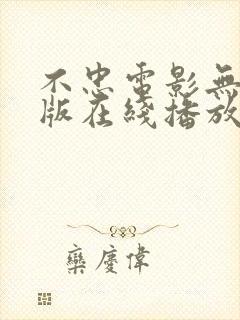 不忠電影無
版在綫播放
欒慶偉